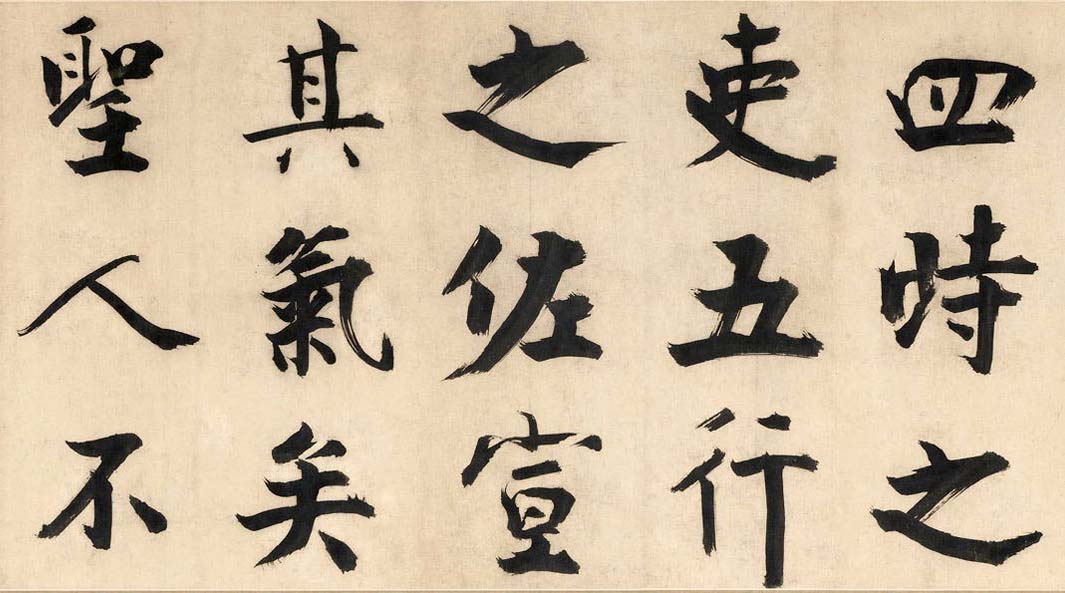 四時之
吏五行
之佐宣
其氣矣
聖人不